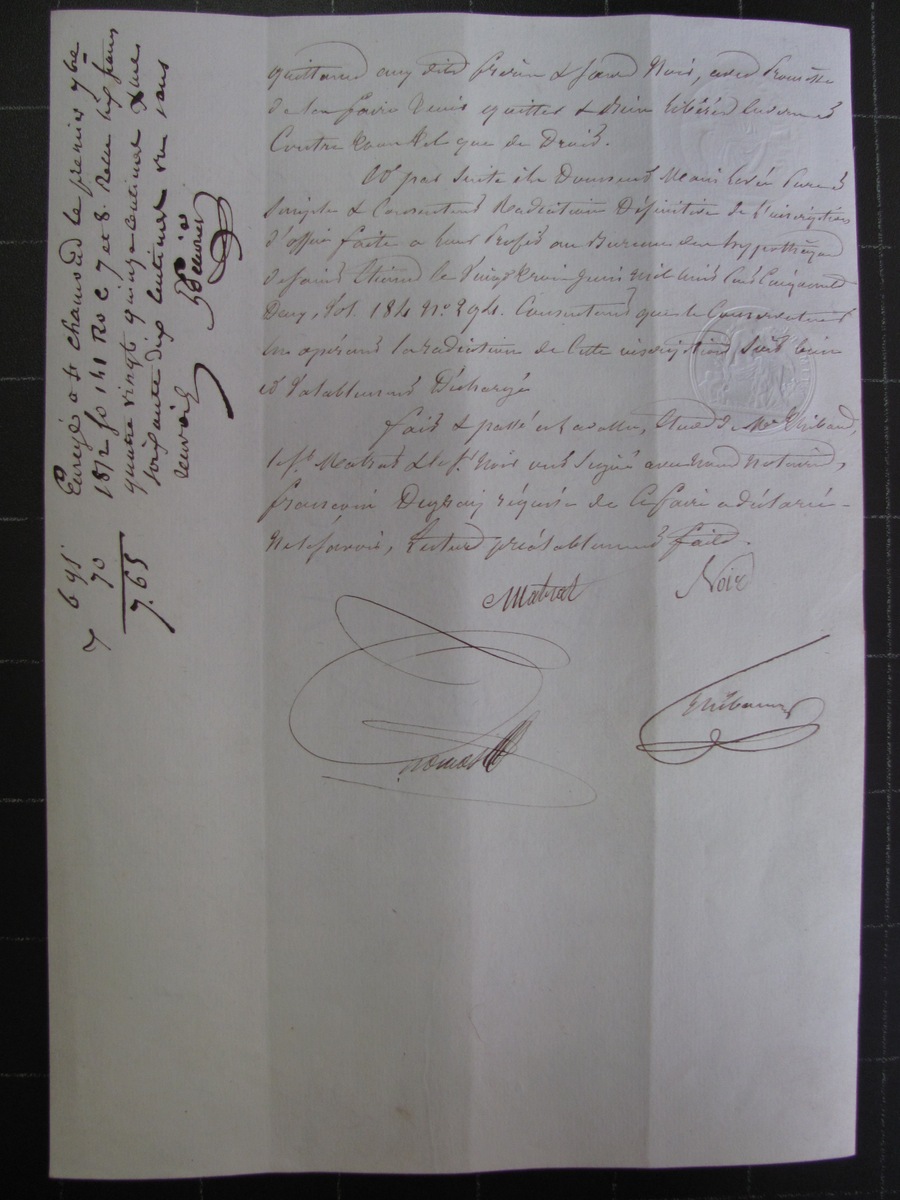 quittance aux dits frère & sœur Noir, avec Promesse
de les faire tenir quittes & bien libérés envers &
Contre tous tel que de Droit.
Et par suite ils Donnent Main levée Pure &
simple & Consentent Radiation Définitive de l'inscription
d'office faite a leur Profit au Bureau des hypothèques
de saint Etienne le Vingt trois juin mil huit Cent Cinquante
Deux, Vol. 184 n.o 294. Consentent que le Conservateur
en opérant la radiation de Cette inscription soit bien
et Valablement Déchargé
fait & passé a Lavalla, Etude de Me Thibaud,
le sr. Matrat & le sr. Noir ont signé avec nous Notaire,
françoise requise de Ce faire a déclaré
Ne le savoir, Lecture préalablement faite.
Matrat Noir
Thibaud
Enregé a St chamond le premier 9bre
1852 fo 141 Ro C 7 et 8. Reçu six francs
quatre vingt quinze centimes Dixme
soixante dix centimes
6 95
70
7. 65